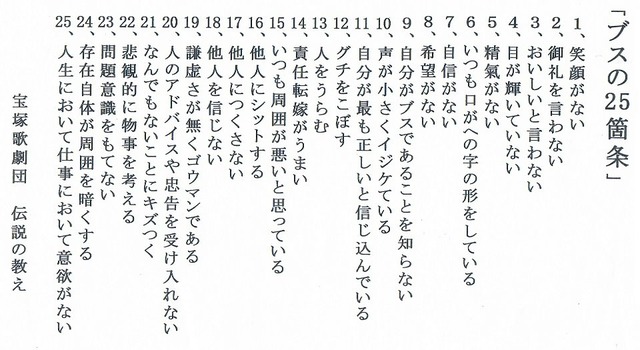 「ブスの25箇条」
1、笑顔がない
2、御礼を言わない
3、おいしいと言わない
4、目が輝いていない
5、精氣がない
6、いつも口がへの字の形をしている
7、自信がない
8、希望がない
9、自分がブスであることを知らない
10、声が小さくイジケている
11、自分が最も正しいと信じ込んでいる
12、グチをこぼす
13、人をうらむ
14、責任転嫁がうまい
15、いつも周囲が悪いと思っている
16、他人にシットする
17、他人につくさない
18、他人を信じない
19、謙虚さが無くゴウマンである
20、人のアドバイスや忠告を受け入れない
21、なんでもないことにキズつく
22、悲観的に物事を考える
23、問題意識をもてない
24、存在自体が周囲を暗くする
25、人生において仕事において意欲がない
宝塚歌劇団　伝説の教え